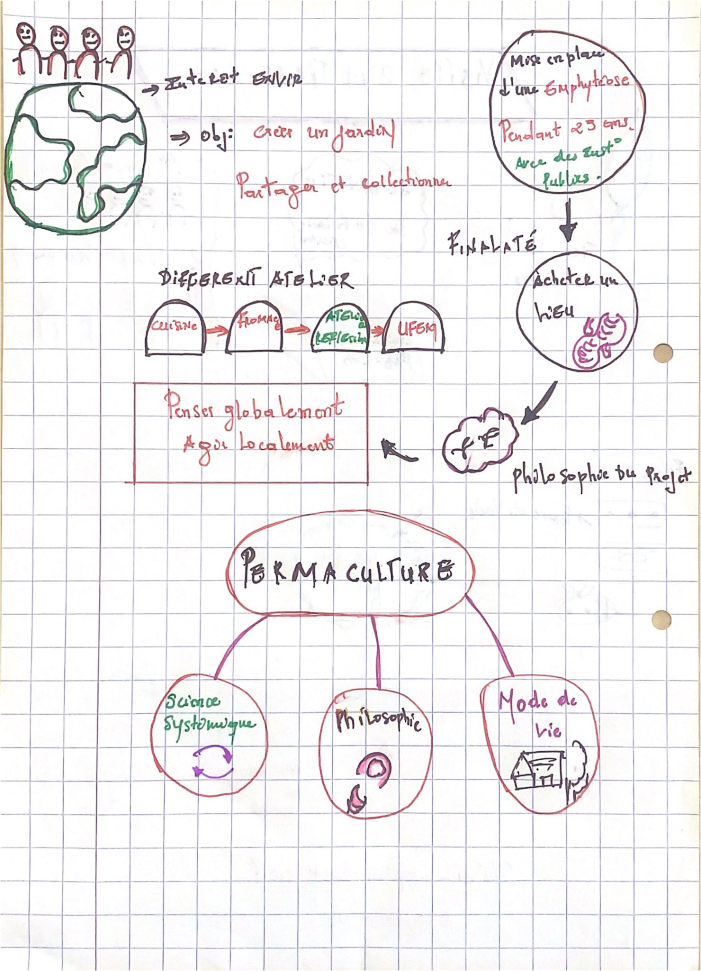 → Interet ENVIR
⇒ obj: créer un jardin
Partager et collectionner
Mise en place
d'une Emphytéose
Pendant 25 ans.
Avec des Inst°
Publics.
FINALATÉ
Acheter un
LIEU
DIFFERENT ATELIER
CUISINE
FROMAGE
ATELIER
Penser globalement
Agir Localement
Philosophie Du Projet
PERMACULTURE
Science
Systémique
Philosophie
Mode de
vie